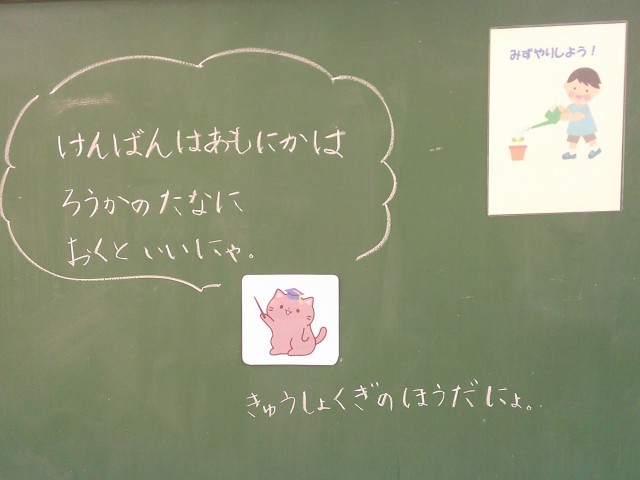 けんばんはあもにかは
ろうかのたなに
おくといいにゃ。
みずやりしよう！
きゅうしょくぎのほうだにょ。